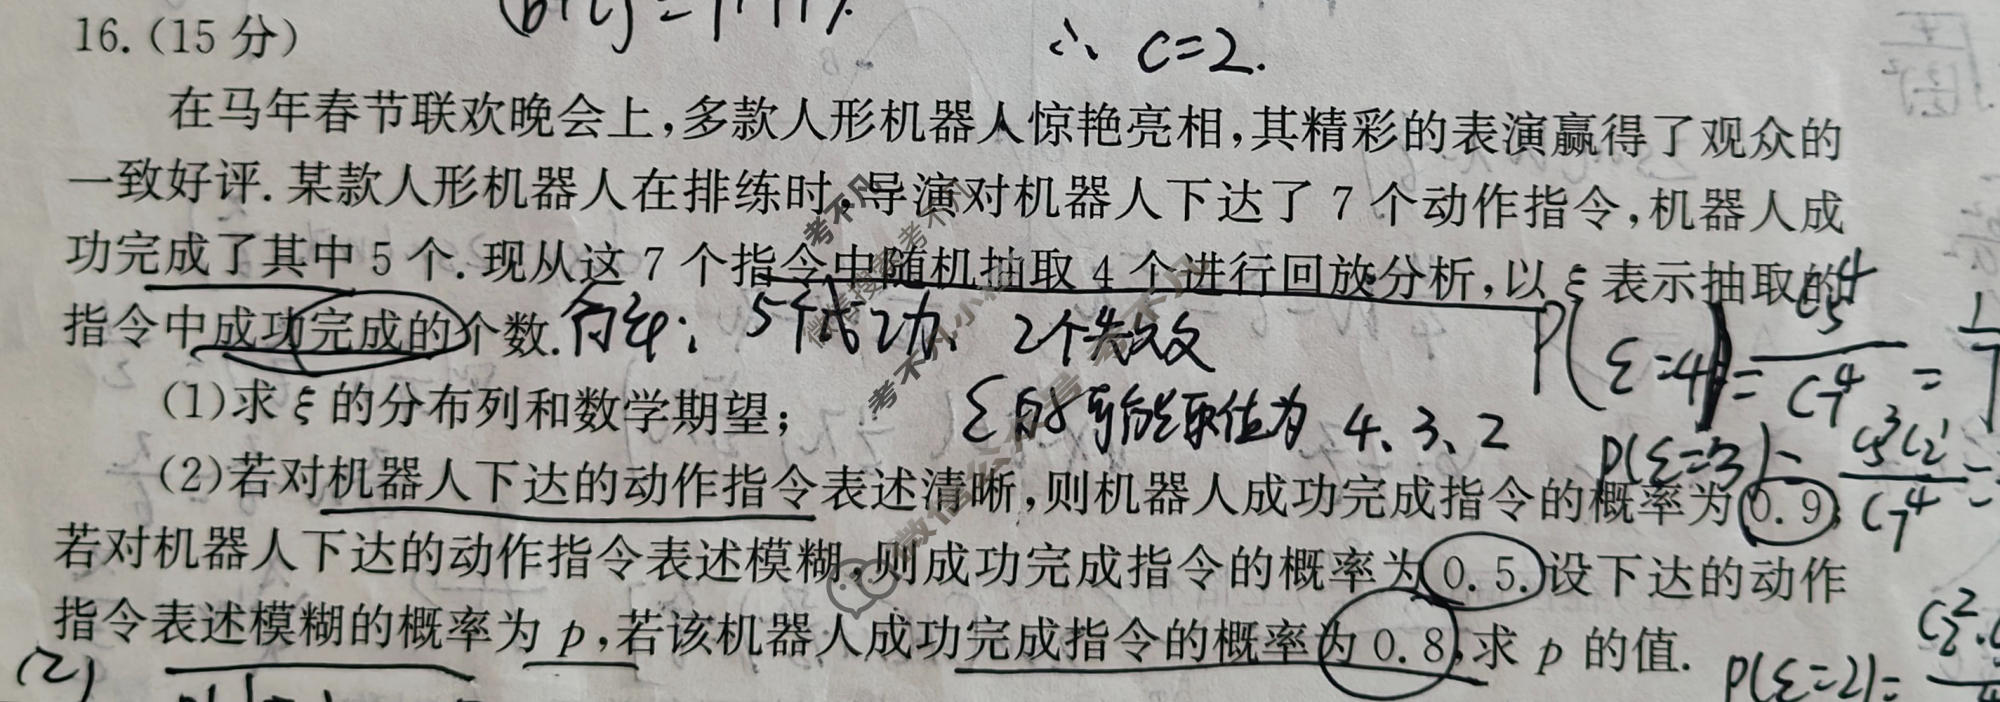 (b+c)=
16.(15分)
∴ c=2.
在马年春节联欢晚会上,多款人形机器人惊艳亮相,其精彩的表演赢得了观众的
一致好评.某款人形机器人在排练时,导演对机器人下达了7个动作指令,机器人成
功完成了其中5个.现从这7个指令中随机抽取4个进行回放分析,以ξ表示抽取的
指令中成功完成的个数.
5个成功、2个失效
P(ξ=4)=C₅⁴/C₇⁴=1/7
(1)求ξ的分布列和数学期望;
ξ的可能取值为 4、3、2
P(ξ=3)=C₅³C₂¹/C₇⁴=
(2)若对机器人下达的动作指令表述清晰,则机器人成功完成指令的概率为0.9;
若对机器人下达的动作指令表述模糊,则成功完成指令的概率为0.5.设下达的动作
指令表述模糊的概率为p,若该机器人成功完成指令的概率为0.8,求p的值.
(2)
P(ξ=2)=C₂²·